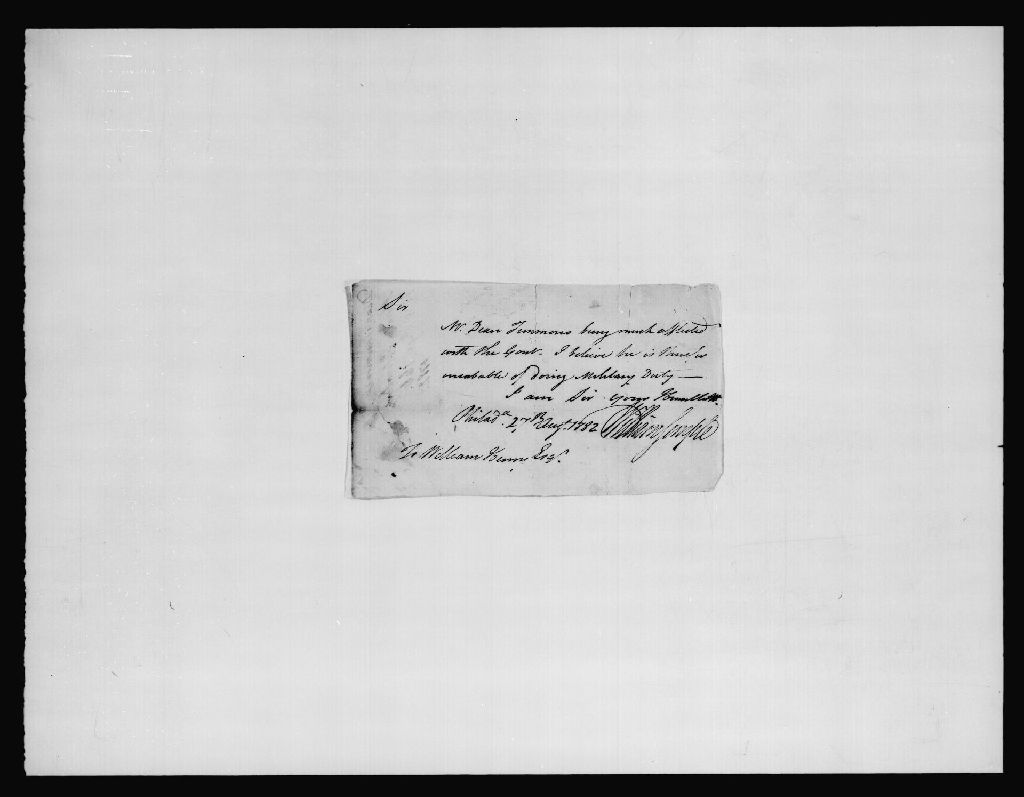 Sir
Mr. Dean Timmons being much afflicted
with the Gout. I believe he is thereby
uncapable of doing Military Duty —
I am Sir your Humble
Philada. 2nd Augt. 1782
To William Henry Esqr.